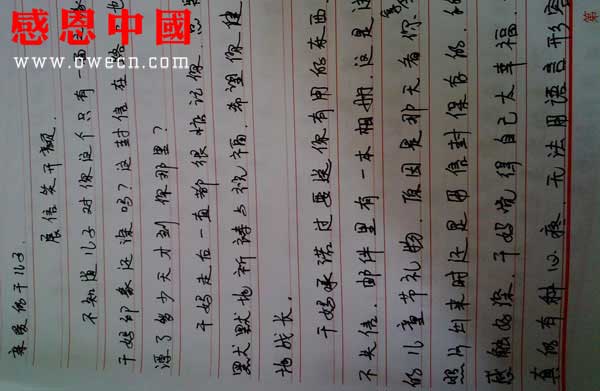 感恩中國
www.owecn.com
亲爱的干儿子
展信笑开颜。
不知道儿子对你这个只有一面
干妈印象还深吗？这封信在路 也
漂了多少天才到你那里？
干妈走后一直都很惦记你、
默默地祈祷与祝福，希望你健
地成长。
干妈承诺过要送你有用的东西，
不失信，邮件里有一本相册，这是
的儿童节礼物，原因是那天看你
照片出来时还是用信封保存的，
感触好深。干妈觉得自己太幸福，
真的有种心疼，无法用语言形容
第